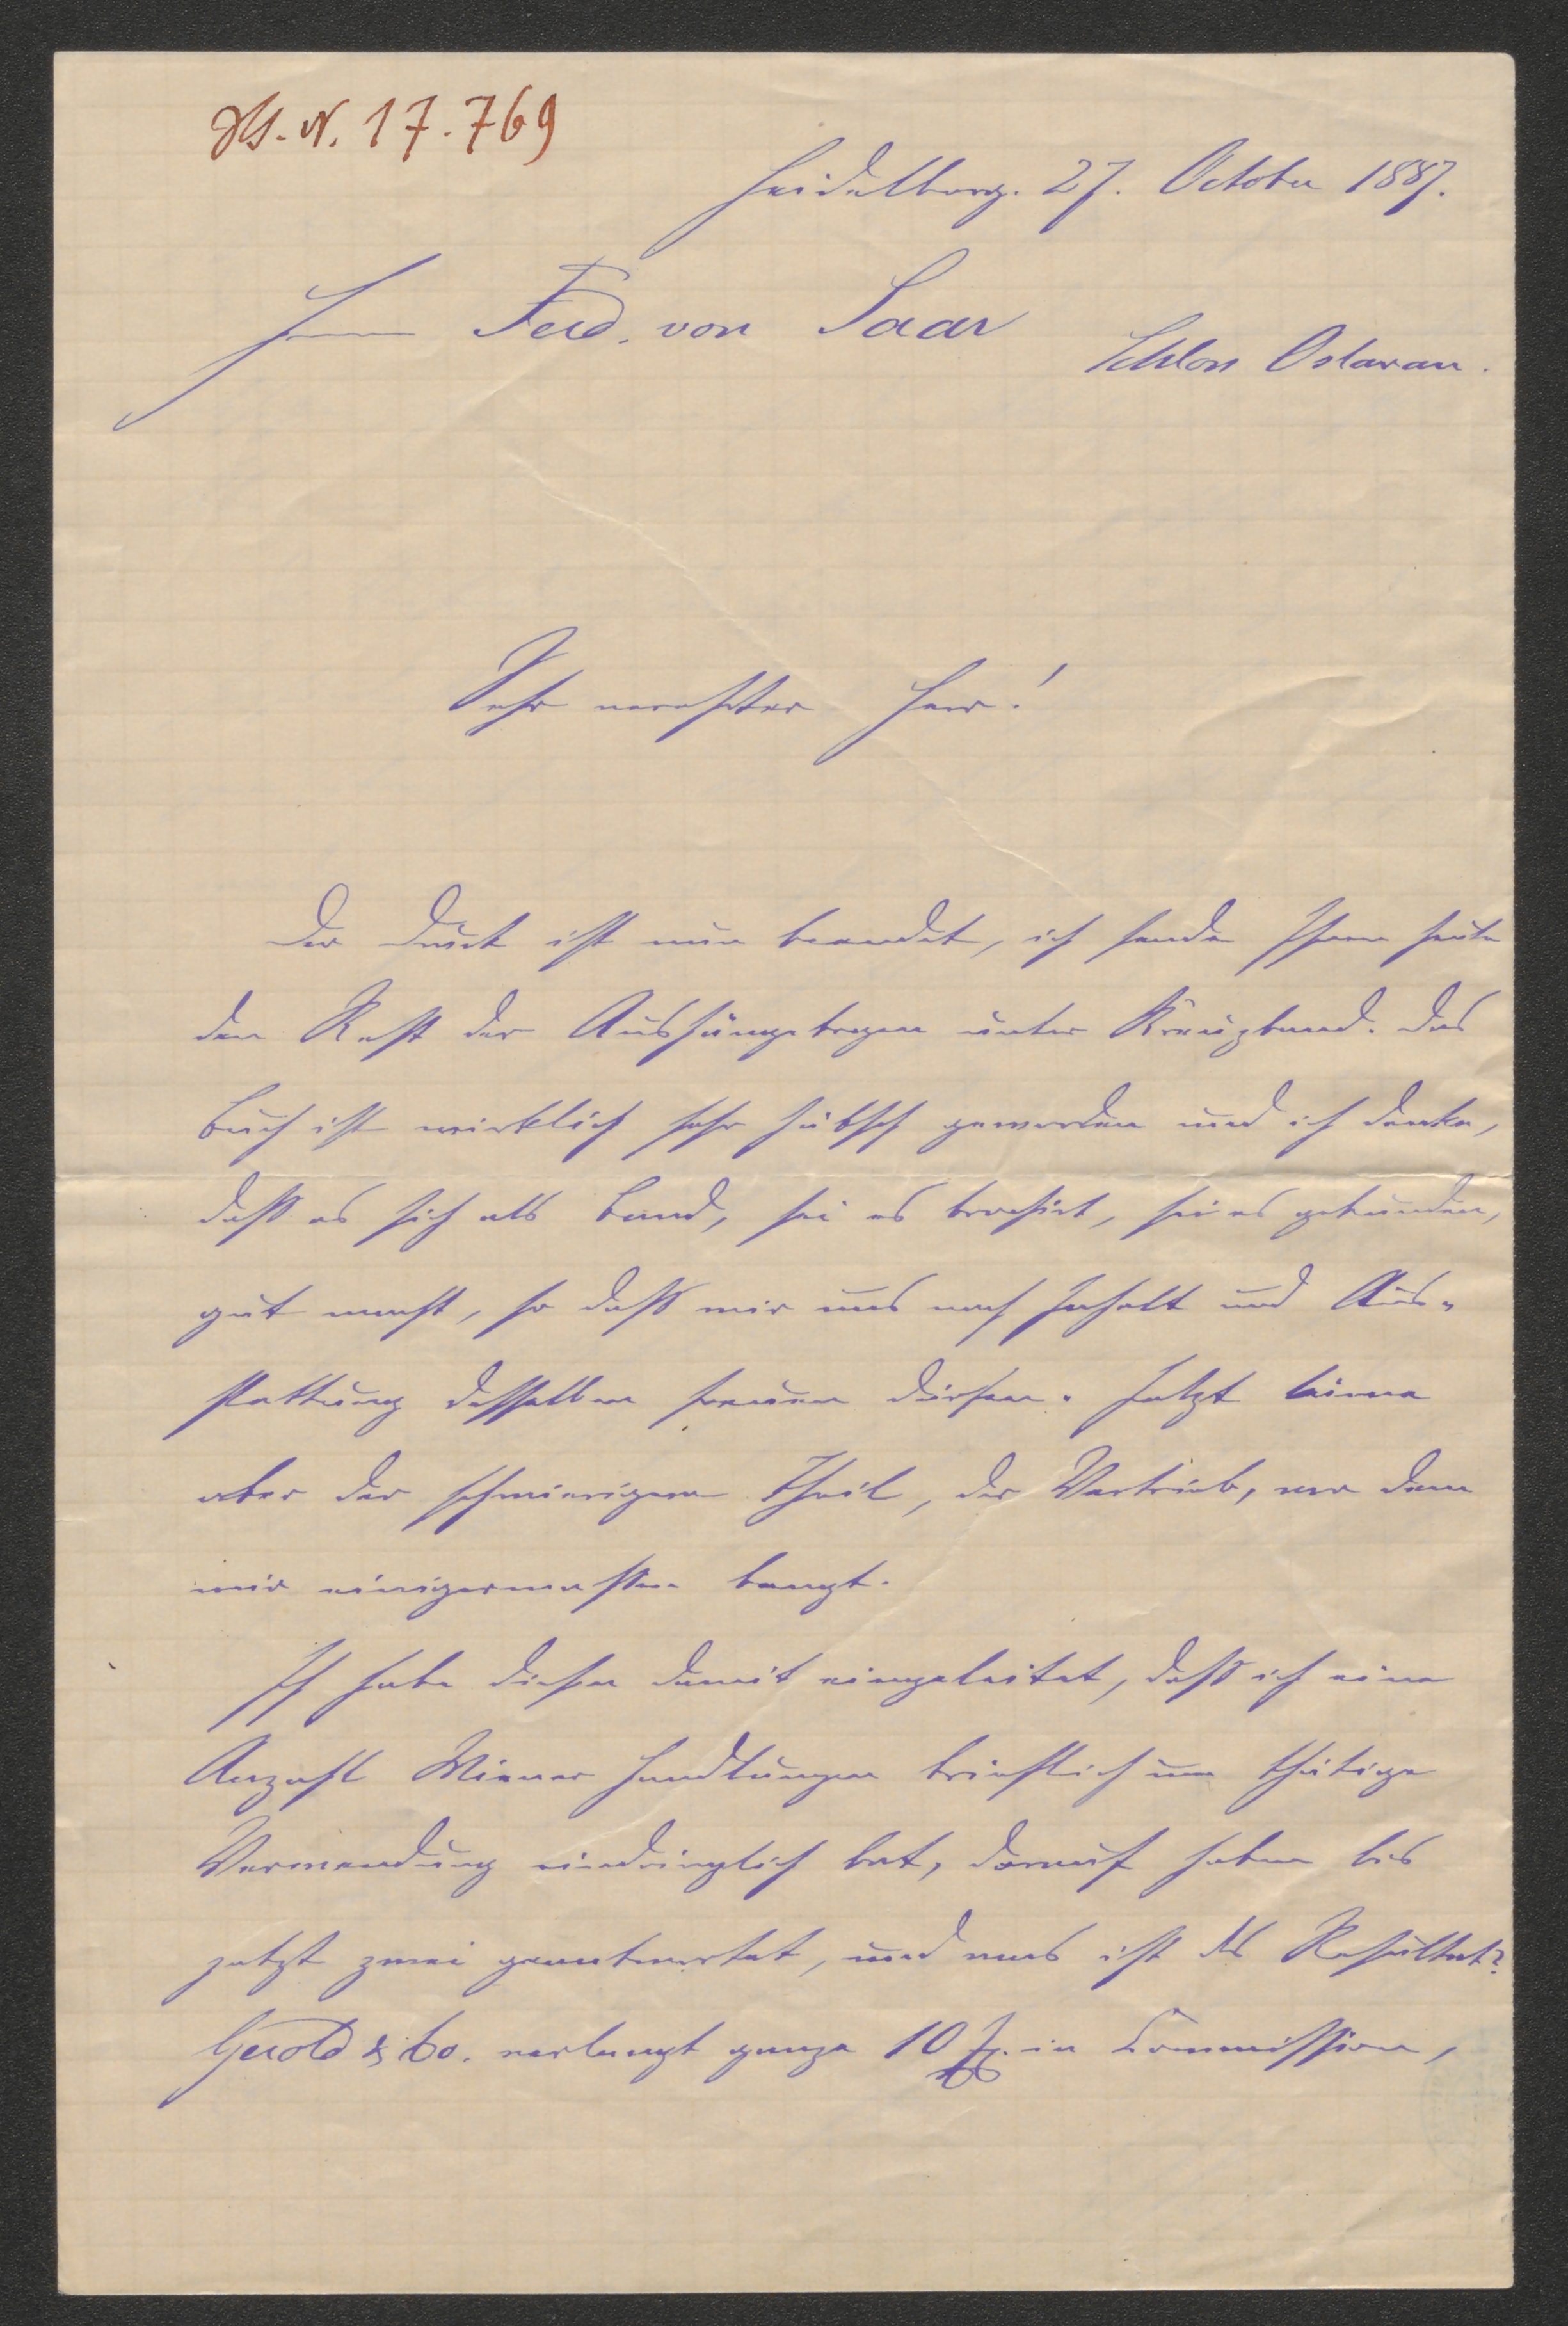 Hs. N. 17.769
Heidelberg. 27. October 1887.
Herrn Ferd. von Saar
Schloss Oslavan.
Sehr verehrter Herr!
Der Druck ist nun beendet, ich sende Ihnen heute
den Rest der Aushängebogen unter Kreuzband. Das
Buch ist wirklich sehr hübsch geworden und ich denke,
daß es sich als Band, sei es brochirt, sei es gebunden,
gut macht, so daß wir uns nach Inhalt und Aus-
stattung desselben freuen dürfen. Jetzt
aber der schwierigere Theil, der Vertrieb, vor dem
mir einigermaßen bangt.
Ich habe diesen damit eingeleitet, daß ich eine
Anzahl Wiener Handlungen brieflich um thätige
Verwendung eindringlich bat, darauf haben bis
jetzt zwei geantwortet, und was ist das Resultat?
Gerold & Co. verlangt ganze 10 Ex. in Commission,